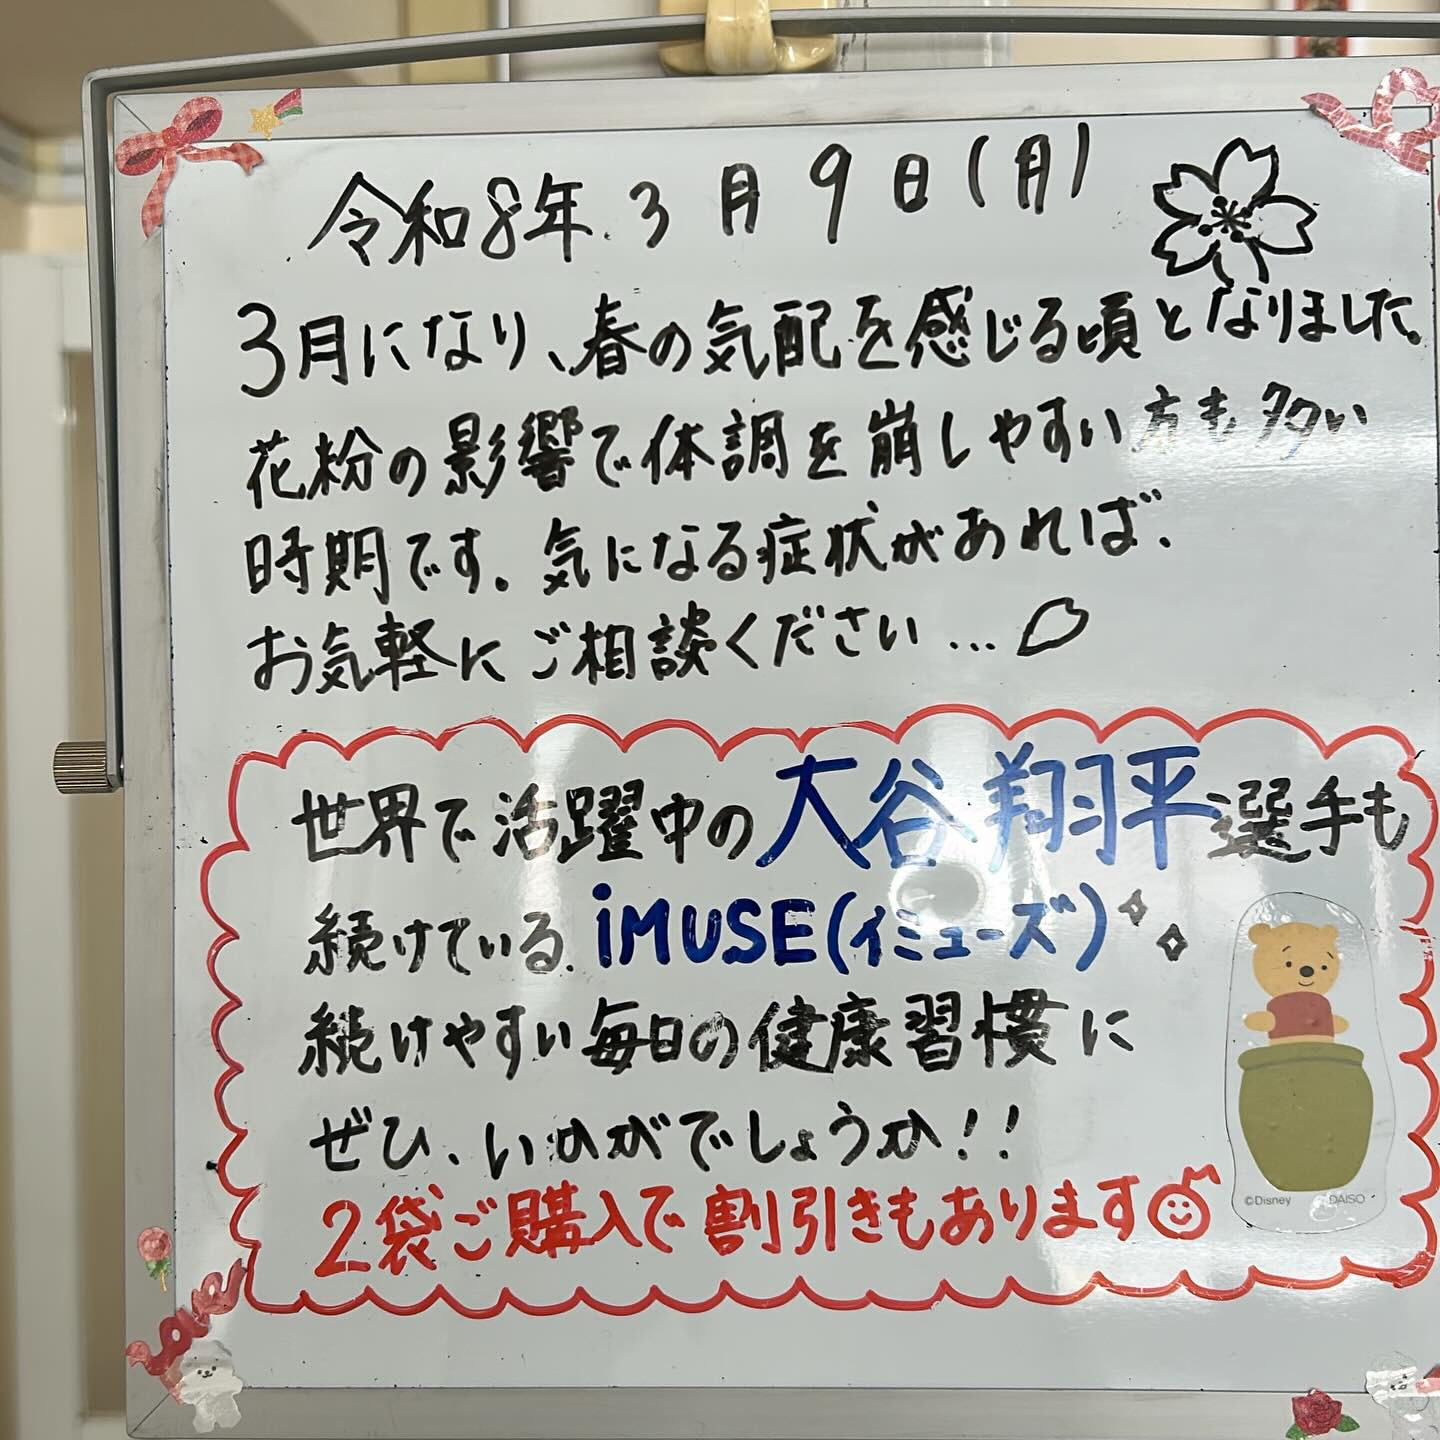 令和8年 3月9日(月)
3月になり、春の気配を感じる頃となりました。
花粉の影響で体調を崩しやすい方も多い
時期です。気になる症状があれば、
お気軽にご相談ください…
世界で活躍中の大谷翔平選手も
続けている iMUSE(イミューズ)
続けやすい毎日の健康習慣に
ぜひ、いかがでしょうか!!
2袋ご購入で割引きもあります
©Disney DAISO